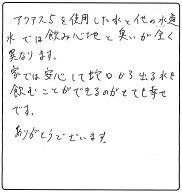 アクアス5を使用した水と他の水道
水では飲み心地と臭いが全く
異なります。
家では安心して蛇口から出る水を
飲むことができるのがとても幸せ
です。
ありがとうございます。